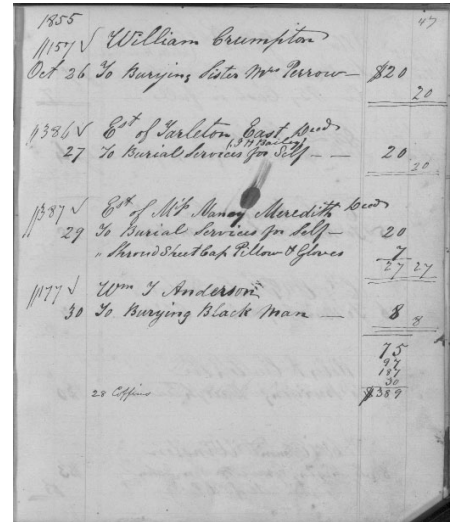 1855 47
1157 ✓ William Crumpton
Oct 26 To Burying Sister Mrs Perrow — $20
20
1386 ✓ Est of Tarleton East Decd
(J H Bailey)
27 To Burial Services for Self — — 20
20
1387 ✓ Est of Mrs Nancy Meredith Decd
29 To Burial Services for Self — 20
" Shroud Sheet Cap Pillow & Gloves 7
27 27
1177 ✓ Wm T Anderson
30 To Burying Black Man — 8
8
75
97
187
30
28 Coffins $389